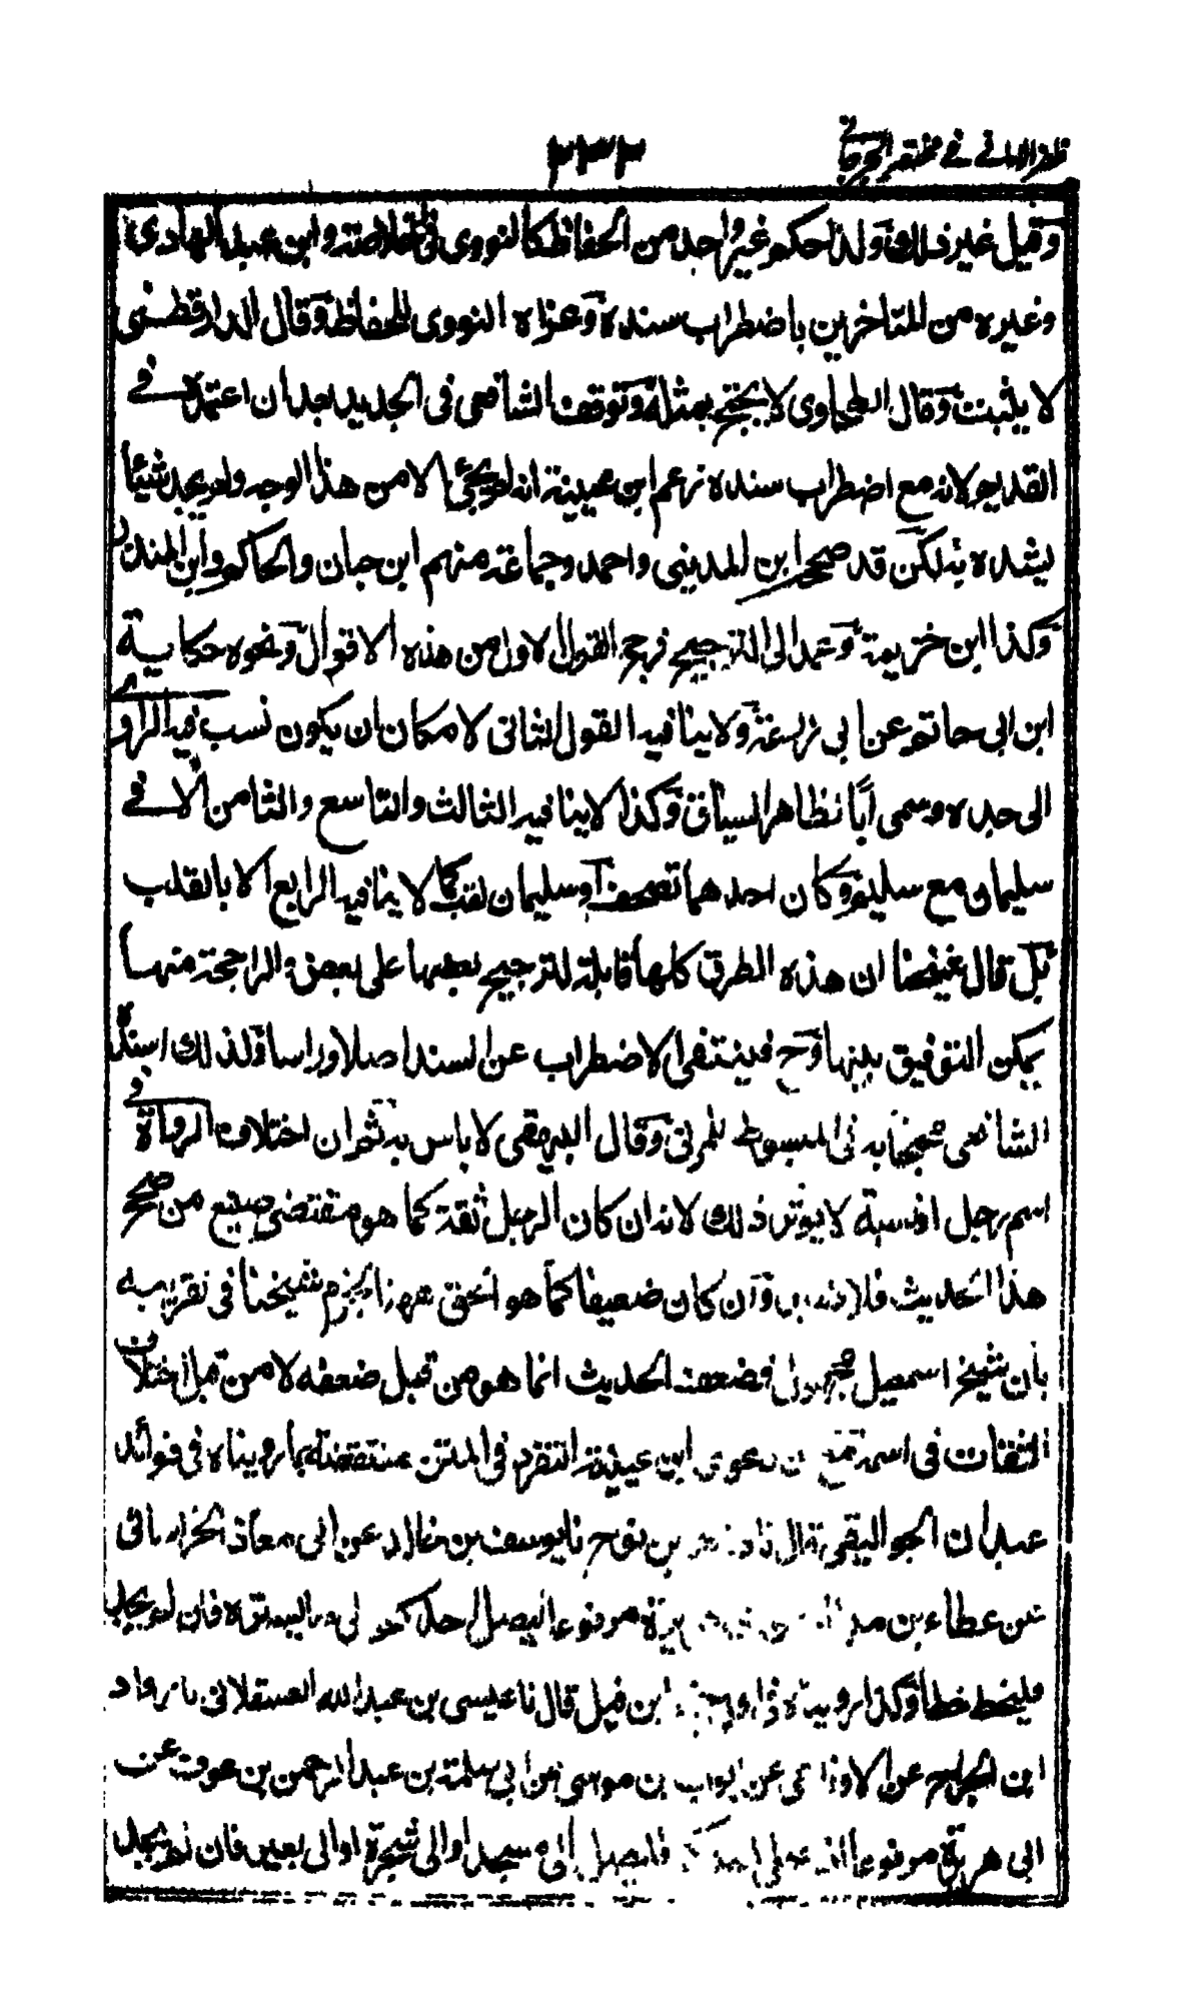 ظفر الاماني في مختصر الجرجاني
٢٣٣
وقيل غير ذلك ولذا حكم غير واحد من الحفاظ كالنووي في الخلاصة وابن عبد الهادي
وغيره من المتاخرين باضطراب سنده وعزاه النووي للحفاظ وقال الدارقطني
لا يثبت وقال الطحاوي لا يحتج بمثله وتوقف الشافعي في الجديد بعد ان اعتمده في
القديم لانه مع اضطراب سنده زعم ابن عيينة انه لم يجئ الا من هذا الوجه ولم يجد شيئا
يشده به لكن قد صححه ابن المديني واحمد وجماعة منهم ابن حبان والحاكم وابن المنذر
وكذا ابن خزيمة وعمد الى الترجيح فرجح القول الاول من هذه الاقوال ونحوه حكاية
ابن ابي حاتم عن ابي زرعة ولا ينا فيه القول الثاني لامكان ان يكون نسب فيه الراوي
الى جده وسمى ابا لظاهر السياق وكذا لا ينافيه الثالث والتاسع والثامن الا في
سليمان مع سليم وكان احدهما تصحف او سليمان لقب كما لا ينافيه الرابع الا بالقلب
بل قال شيخنا ان هذه الطرق كلها قابلة لترجيح بعضها على بعض والراجحة منها
يمكن التوفيق بينها وح فينتفي الاضطراب عن السند اصلا وراسا ولذلك اسنده
الشافعي محتجا به في المبسوط للمزني وقال البيهقي لا باس به ثم ان اختلاف الرواة في
اسم رجل او نسبة لا يوثر ذلك لانه ان كان الرجل ثقة كما هو مقتضى صنيع من صحح
هذا الحديث فلا وان كان ضعيفا كما هو الحق هنا لجزم شيخنا في تقريبه
بان شيخ اسمعيل مجهول فضعف الحديث انما هو من قبل ضعفه لا من قبل اختلاف
الثقات في اسمه دعوى ابن عيينة التفرد في المتن منتقضة بما رويناه في فوائد
عبدان الجواليقي قال بن نوح نا يوسف بن خالد عن ابي معاذ الخراساني
عن عطاء بن مرفوعا ليصل احدكم الى ما يستره فان لم يجد
فليخط خطا وكذا رويناه ابن فيل قال نا عيسى بن عبد الله العسقلاني نا رواد
ابن الجراح عن الاوزاعي عن ايوب بن موسى عن ابي سلمة بن عبد الرحمن بن عوف عن
ابي هريرة مرفوعا اذا صلى احدكم فليصل الى مسجد او الى شجرة او الى بعير فان لم يجد